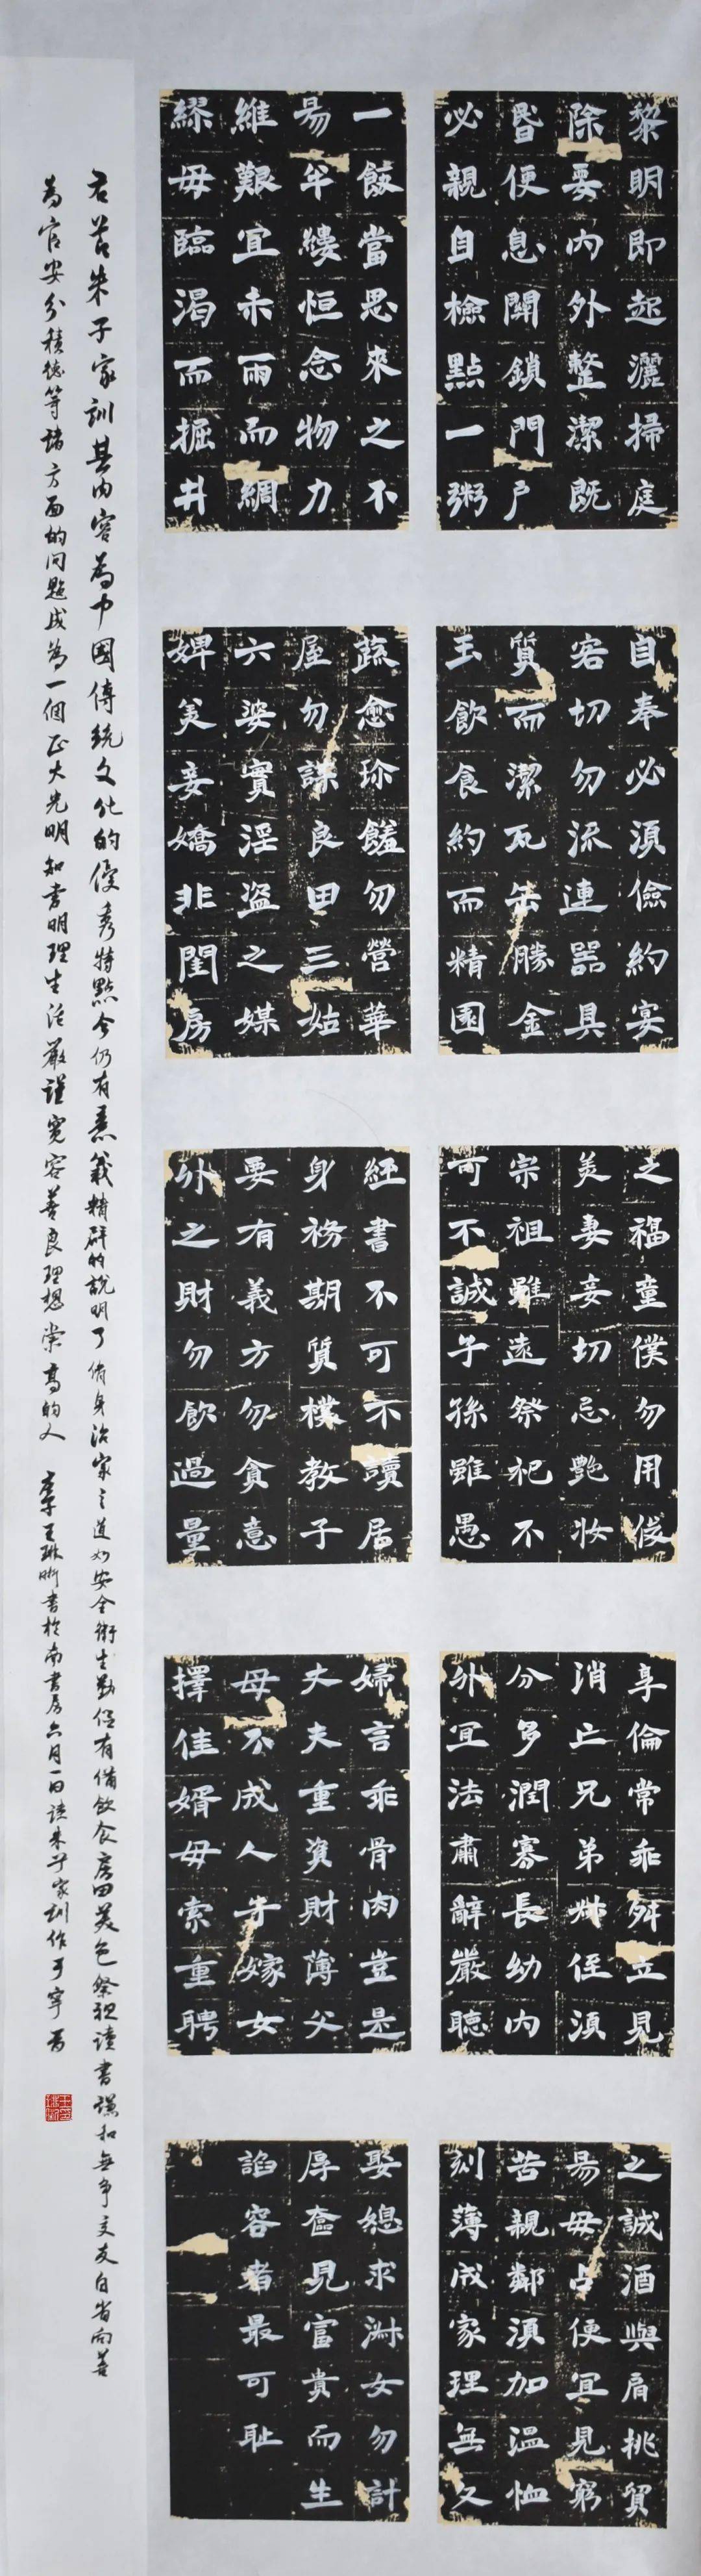 黎明即起灑掃庭
除要内外整潔既
昏便息關鎖門户
必親自檢點一粥
一飯當思來之不
易半縷恒念物力
維艱宜未雨而綢
繆毋臨渴而掘井
自奉必須儉約宴
客切勿流連器具
質而潔瓦缶勝金
玉飲食約而精園
蔬愈珍饈勿營華
屋勿謀良田三姑
六婆實淫盗之媒
婢美妾嬌非閨房
之福童僕勿用俊
美妻妾切忌艷妝
宗祖雖遠祭祀不
可不誠子孫雖愚
經書不可不讀居
身務期質樸教子
要有義方勿貪意
外之財勿飲過量
享倫常乖舛立見
消亡兄弟叔侄須
分多潤寡長幼内
外宜法肅辭嚴聽
婦言乖骨肉豈是
丈夫重資財薄父
母不成人子嫁女
擇佳婿毋索重聘
之誠酒與肩挑貿
易毋占便宜見窮
苦親鄰須加温恤
刻薄成家理無久
娶媳求淑女勿計
厚奩見富貴而生
諂容者最可恥
朱子家訓其内容為中國傳統文化的優秀特點今仍有意義精辟的說明了脩身治家之道如安全衛生勤儉有備飲食房田美色祭祖讀書謙和無争交友自省向善
為官安分積德等諸方面的問題成為一個正大光明知書明理生活嚴謹寬容善良理想崇高的人 王琳昕書於南書房六月一日讀朱子家訓作于寧